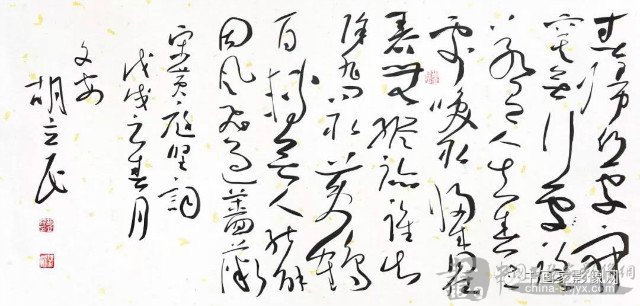 春归何处寂
寞無行路
若有人知春去
处唤取归来同住
春無踪迹谁知
除非问取黄鹂
百啭無人能解
因风飞过蔷薇
宋黄庭坚词
戊戌之春月
文安
胡立民